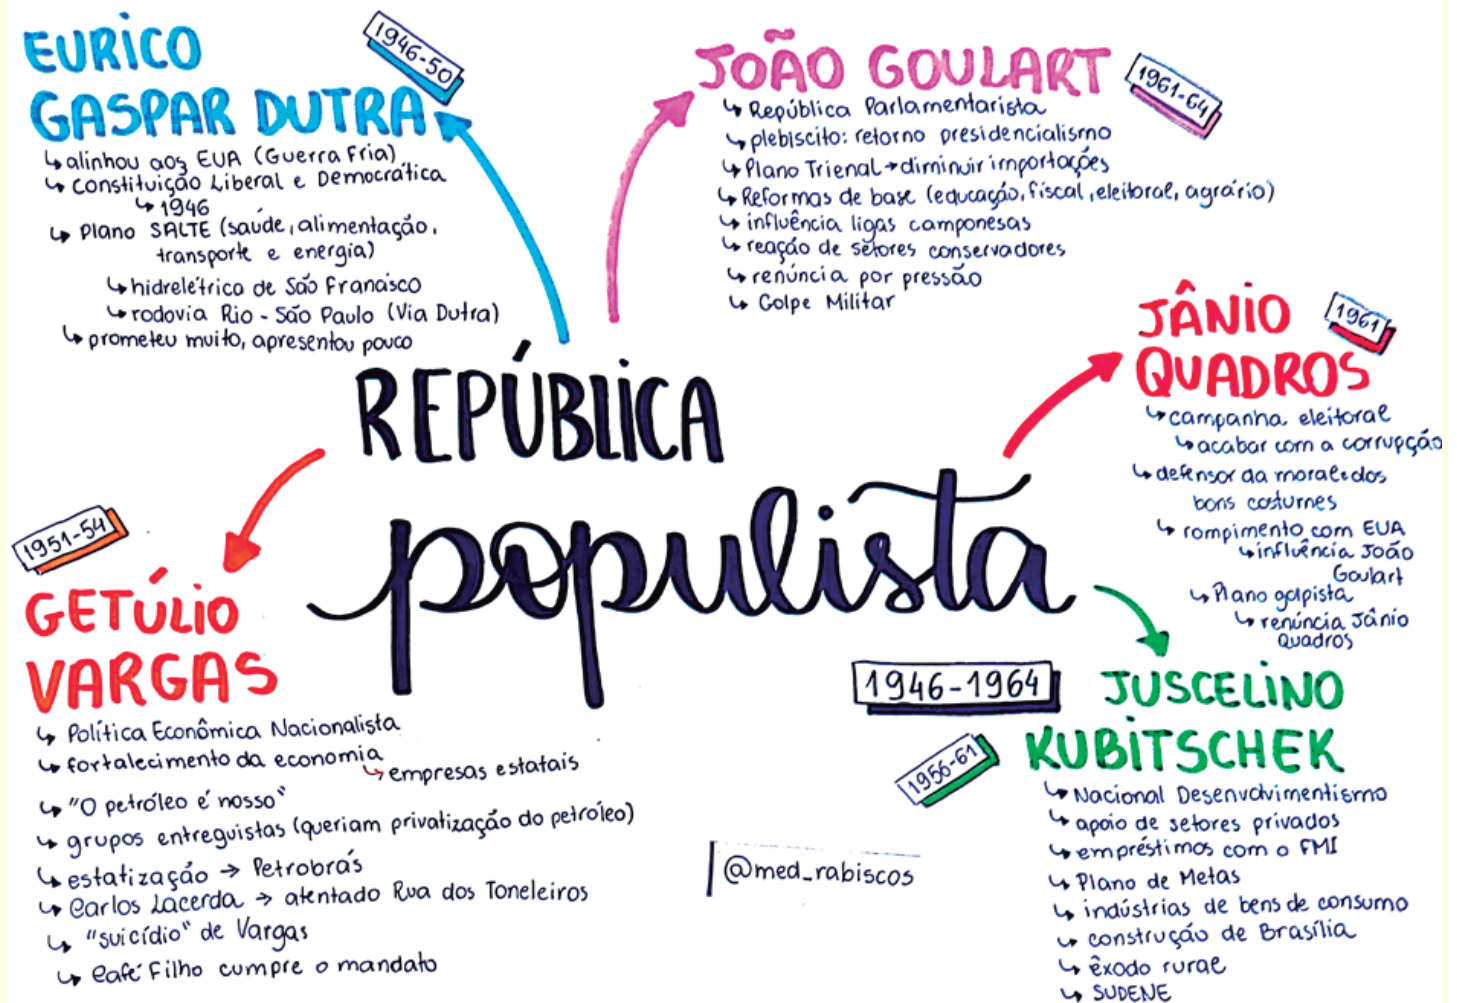 EURICO
GASPAR DUTRA
1946-50
↳ alinhou aos EUA (Guerra Fria)
↳ Constituição Liberal e Democrática
↳ 1946
↳ Plano SALTE (saúde, alimentação,
transporte e energia)
↳ hidrelétrica de São Francisco
↳ rodovia Rio - São Paulo (Via Dutra)
↳ prometeu muito, apresentou pouco
JOÃO GOULART
1961-64
↳ República Parlamentarista
↳ plebiscito: retorno presidencialismo
↳ Plano Trienal → diminuir importações
↳ Reformas de base (educação, fiscal, eleitoral, agrário)
↳ influência ligas camponesas
↳ reação de setores conservadores
↳ renúncia por pressão
↳ Golpe Militar
JÂNIO
QUADROS
1961
↳ campanha eleitoral
↳ acabar com a corrupção
↳ defensor da moral e dos
bons costumes
↳ rompimento com EUA
↳ influência João
Goulart
↳ Plano golpista
↳ renúncia Jânio
Quadros
REPÚBLICA
populista
1946-1964
1951-54
GETÚLIO
VARGAS
↳ Política Econômica Nacionalista
↳ fortalecimento da economia
↳ empresas estatais
↳ "O petróleo é nosso"
↳ grupos entreguistas (queriam privatização do petróleo)
↳ estatização → Petrobrás
↳ Carlos Lacerda → atentado Rua dos Toneleiros
↳ "suicídio" de Vargas
↳ Café Filho cumpre o mandato
JUSCELINO
KUBITSCHEK
1956-61
↳ Nacional Desenvolvimentismo
↳ apoio de setores privados
↳ empréstimos com o FMI
↳ Plano de Metas
↳ indústrias de bens de consumo
↳ construção de Brasília
↳ êxodo rural
↳ SUDENE
@med_rabiscos